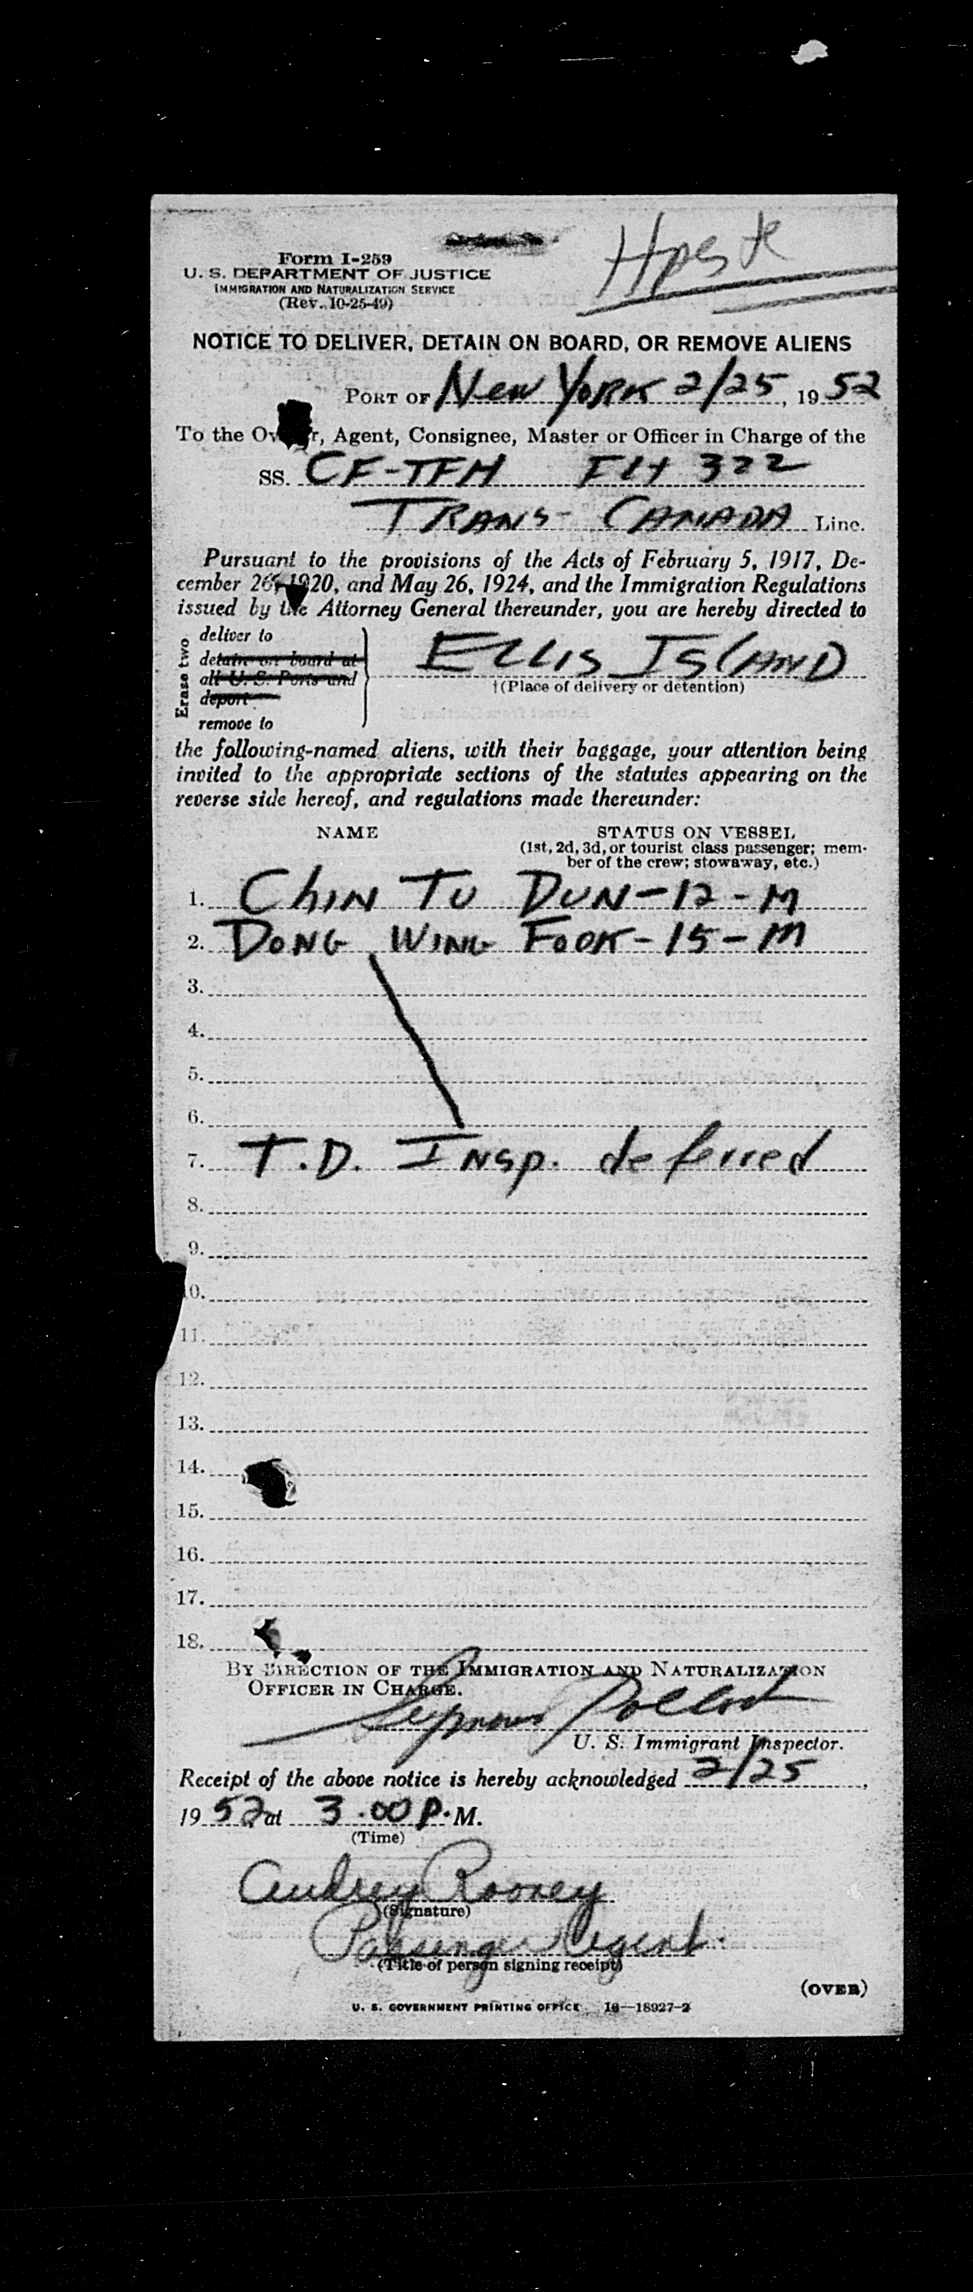 Form I-259
U. S. DEPARTMENT OF JUSTICE
IMMIGRATION AND NATURALIZATION SERVICE
(Rev. 10-25-49)
NOTICE TO DELIVER, DETAIN ON BOARD, OR REMOVE ALIENS
PORT OF New York 2/25, 1952
To the Owner, Agent, Consignee, Master or Officer in Charge of the
SS. CF-TFH FLT 322
TRANS-CANADA Line.
Pursuant to the provisions of the Acts of February 5, 1917, De-
cember 26, 1920, and May 26, 1924, and the Immigration Regulations
issued by the Attorney General thereunder, you are hereby directed to
Erase two
deliver to
detain on board at
all U. S. Ports and
deport
remove to
ELLIS ISLAND
†(Place of delivery or detention)
the following-named aliens, with their baggage, your attention being
invited to the appropriate sections of the statutes appearing on the
reverse side hereof, and regulations made thereunder:
NAME STATUS ON VESSEL
(1st, 2d, 3d, or tourist class passenger; mem-
ber of the crew; stowaway, etc.)
1. Chin Tu Dun-12-M
2. Dong Wing Fook-15-M
3.
4.
5.
6.
7. T.D. Insp. deferred
8.
9.
10.
11.
12.
13.
14.
15.
16.
17.
18.
BY DIRECTION OF THE IMMIGRATION AND NATURALIZATION
OFFICER IN CHARGE.
Seymour Pollock
U. S. Immigrant Inspector.
Receipt of the above notice is hereby acknowledged 2/25,
1952 at 3.00 P.M.
(Time)
Audrey Rooney
(Signature)
Passenger Agent.
(Title of person signing receipt)
(OVER)
U. S. GOVERNMENT PRINTING OFFICE 16—18927-2